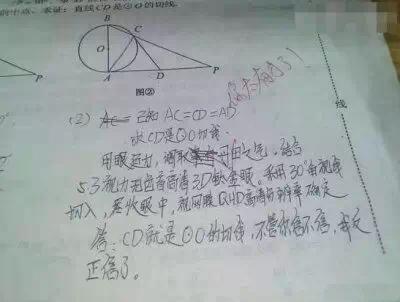 的中点，求证：直线CD是⊙O的切线.
B
C
O
A
D
P
P
图②
你太有才了！
(2) 已知 AC=CD=AD
求CD是⊙O切线.
用眼超力，调取丹田之气，结合
5.3视力和电音商博3D钛金眼。采用30°角视线
切入，尽收眼中，视网膜QHD高清分辨率确定
答：CD就是⊙O的切线，不管你信不信，我反
正信了。
线